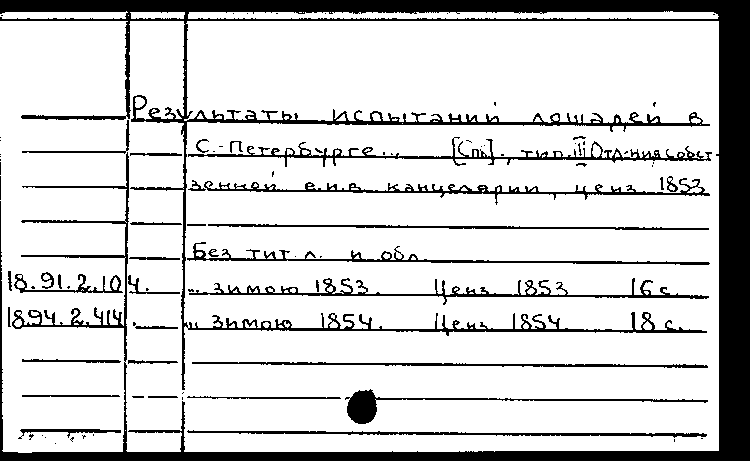 Результаты испытаний лошадей в
С.-Петербурге.., [Спб]., тип. III Отд-ния собст-
венной е.и.в. канцелярии, ценз 1853
Без тит л. и обл
18.91.2.104. „ зимою 1853. Ценз 1853 16 с.
18.94.2.414. „ зимою 1854. Ценз 1854. 18 с.